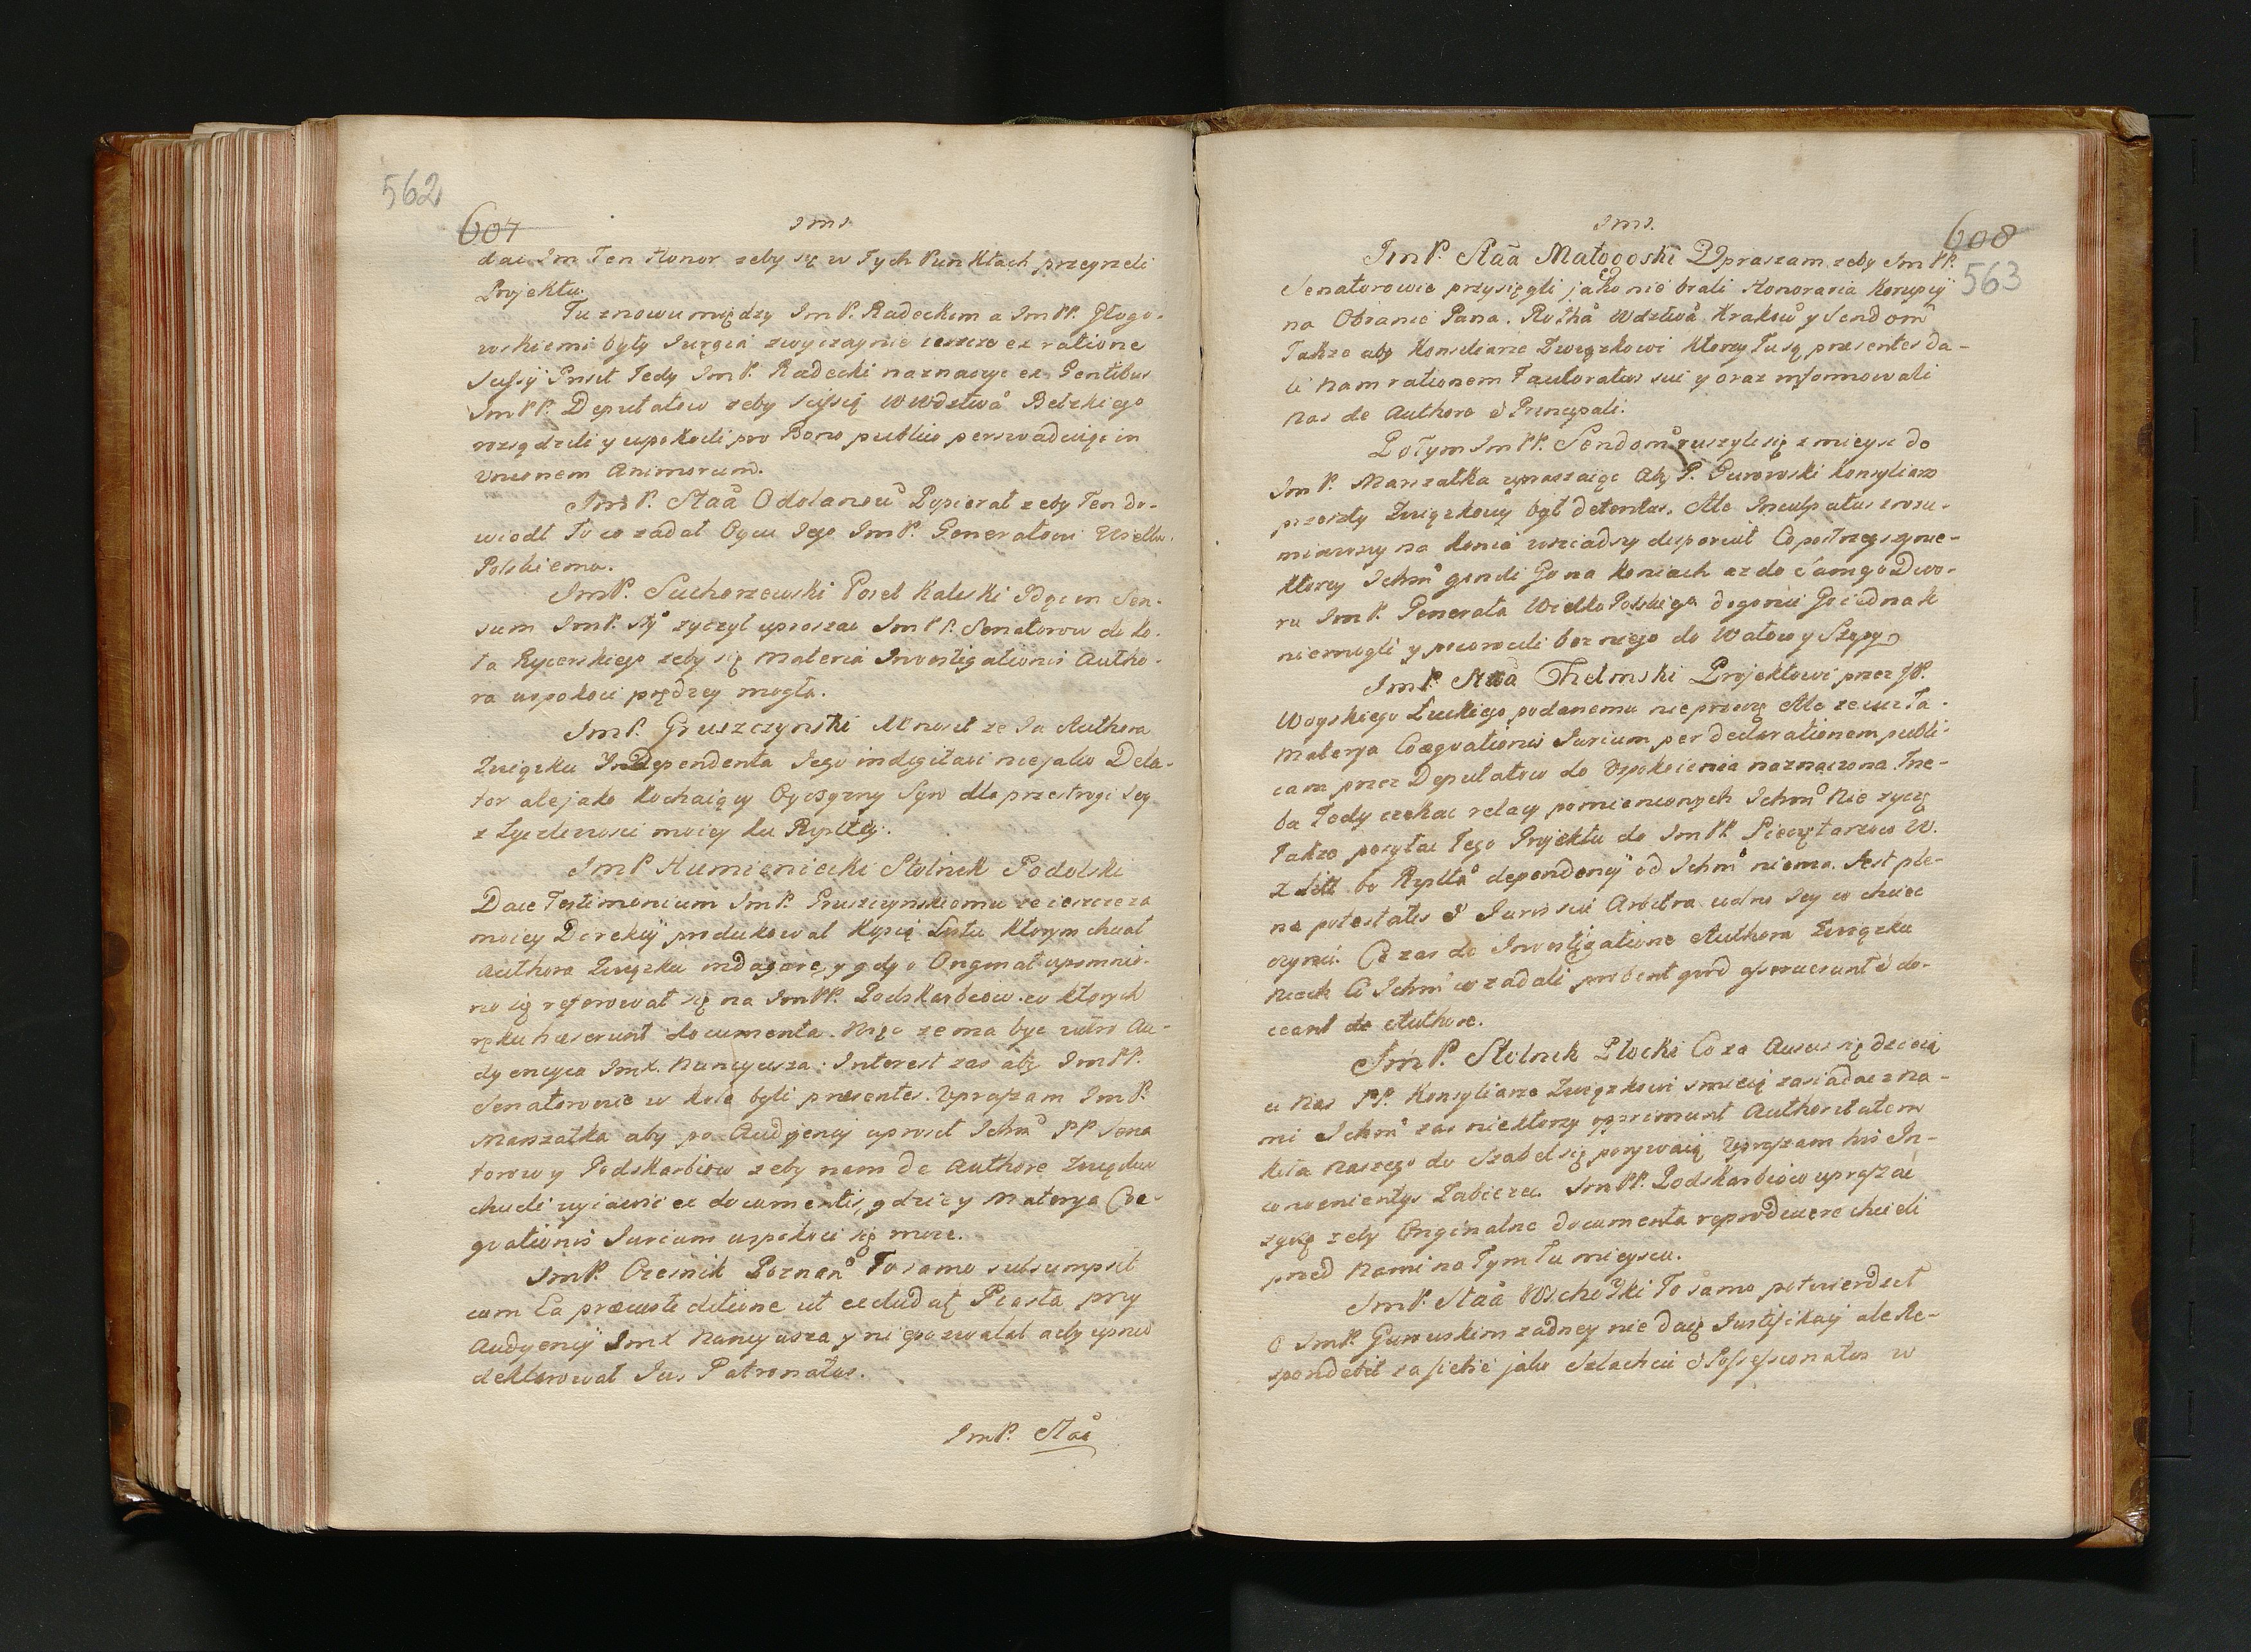 562
607
Jms
dac Im Ten Honor zeby się w Tych Punktach przeyrzeli
Projektu.
Tu znowu między ImP. Radeckim a ImPP. Głogo-
wskiemi były Jurgia zwyczaynie ieszcze ex ratione
Sessyi Prosił Tedy ImP. Radecki naznaczyc ex Gentibus
ImPP. Deputatow zeby Scyssię Wwdztwa Bełzkiego
rozsądzili y uspokoili pro Bono publico perswaduiąc in
Unionem Animorum.
ImP. Staa Odolanow Popierał zeby Ten do-
wiodł To co zadał Oycu Jego ImP. Generałowi Wielko
Polskiemu.
ImP. Suchorzewski Poseł Kaliski Idąc in Sen-
sum ImP. życzył uproszac ImPP. Senatorow do Ko-
ła Rycerskiego zeby się Materia Investigationis Autho-
ra uspokoic prędzey mogła.
ImP. Gruszczynski Wnosił ze Ja Authora
Związku Independenta Jego indigitavi nie jako Dela-
tor ale jako Kochaiący Oyczyzny Syn dla przestrogi Jey
z życzliwosci moiey ku Rpltey.
ImP Humieniecki Stolnik Podolski
Daie Testimonium ImP. Gruszczynskiemu ze ieszcze za
moiey Dyrekcyi produkował Kopią Listu Którym chciał
Authora Związku indagare, y gdy o Originał upomnio-
no się referował się na ImPP. Podskarbiow w których
ręku haeserunt documenta. Więc ze ma byc iutro Au-
dyencya ImX. Nuncyusza. Interest zas aby ImPP.
Senatorowie w kole byli praesentes. Upraszam ImP.
Marszałka aby po Audyencyi uprosił Ichm PP Sena
torow y Podskarbiow zeby nam de Authore Związku
chcieli wyiawic ex documentis, gdzie y Materya Coae-
quationis Jurium uspokoic się moze.
ImP. Czesnik Poznan To samo subsumpsit
cum Ea praecustoditione ut excludat Piasta przy
Audyencyi ImX Nuncyusza y nie pozwalał aby wprzod
deklarował Jus Patronatus.
ImP. Staa
Jms.
608
563
ImP. Staa Małogoski Upraszam zeby ImPP.
Senatorowie przysięgli jako nie brali Honoraria Korupcyi
na Obranie Pana. Rotha Wdztwa Krakow y Sendom
Takze aby Konsiliarze Związkowi Ktorzy Tu są praesentes da-
li nam rationem Tautoratus sui y oraz informowali
nas de Authore & Principali.
Potym ImPP. Sendom ruszyli się z mieysc do
ImP. Marszałka upraszaiąc Aby P. Gurowski Konsyliarz
przeszły Związkowy był detentus. Ale Inculpatus zrozu-
miawszy na Konia wsiadszy disparuit Co postrzegszy nie-
ktorzy Ichm gonili Go na Koniach az do Samego Dwo-
ru ImP. Generała Wielko Polskiego dogonic Go iednak
niemogli y powrocili bez niego do Wałow y Szopy
ImP. Staa Chelmski Projektowi przez JP.
Woyskiego Łuckiego podanemu nie przeczę Ale ze iuz Ta
Materya Coaequationis Jurium per declarationem publi-
cam przez Deputatow do Uspokoienia naznaczona Trze-
ba Tedy czekac relacyi pomienionych Ichm Nie życzę
Takze posyłac Tego Projektu do ImPP. Pieczętarzow W.
X Litt bo Rplta dependencyi od Ichm niema. Jest ple-
nae potestatis & Juris sui Arbitra wolno Jey co chciec
czynic. Co zas do Investigatione Authora Związku
niech Ci Ichm co zadali probent quod asseruerunt & do-
ceant de Authore.
ImP. Stolnik Płocki Co za Ausus się dzieią
u Nas PP. Konsyliarze Związkowi smieią zasiadac z Na-
mi Ichm zas niektorzy opprimunt Authoritatem
Koła Naszego do Szabel się porywaią Upraszam his In-
convenientys Zabiezec. ImPP. Podskarbiow upraszac
zyczę zeby Originalne documenta reproducere chcieli
przed Nami na Tym Tu mieyscu.
ImP. Staa Wschowski To samo potwierdził
O ImP. Gurowskim zadney nie daię Justifikacyi ale Re-
spondebit za siebie jako Szlachcic & Possessionatus w